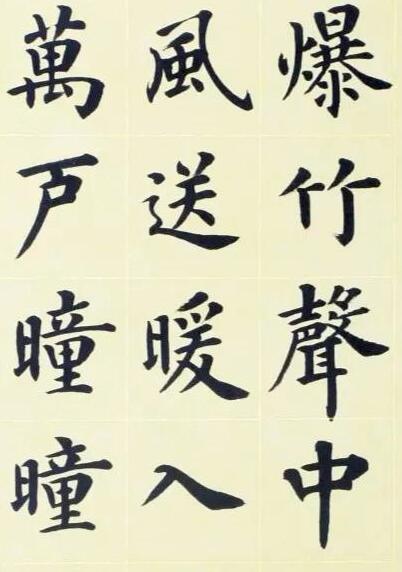 爆竹聲中
風送暖入
萬戶曈曈